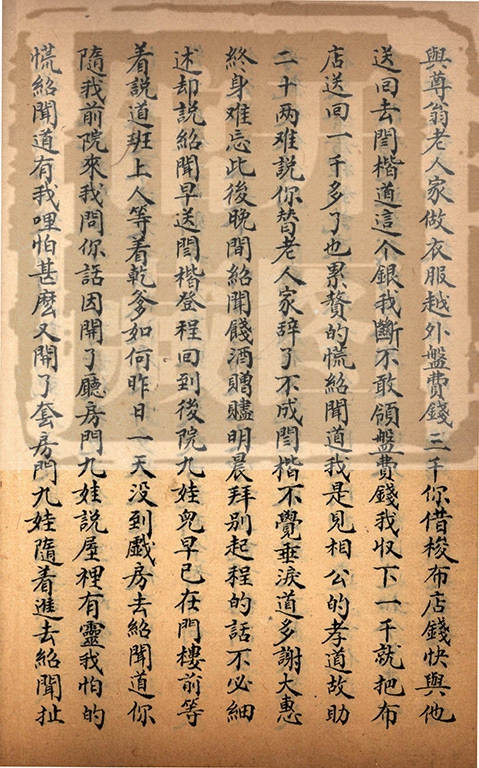 與尊翁老人家做衣服越外盤費錢三千你借梭布店錢快與他
送回去閆楷道這个銀我斷不敢領盤費錢我収下一千就把布
店送回一千多了也累贅的慌紹聞道我是見相公的孝道故助
二十两难説你替老人家辞了不成閆楷不覺垂淚道多謝大惠
終身难忘此後晚間紹聞餞酒贈贐明晨拜别起程的話不必細
述却説紹聞早送閆楷登程回到後院九娃兒早已在門樓前等
着説道班上人等着乾爹如何昨日一天没到戯房去紹聞道你
隨我前院來我問你話因開了廳房門九娃説屋裡有靈我怕的
慌紹聞道有我哩怕甚麽又開了套房門九娃隨着進去紹聞扯